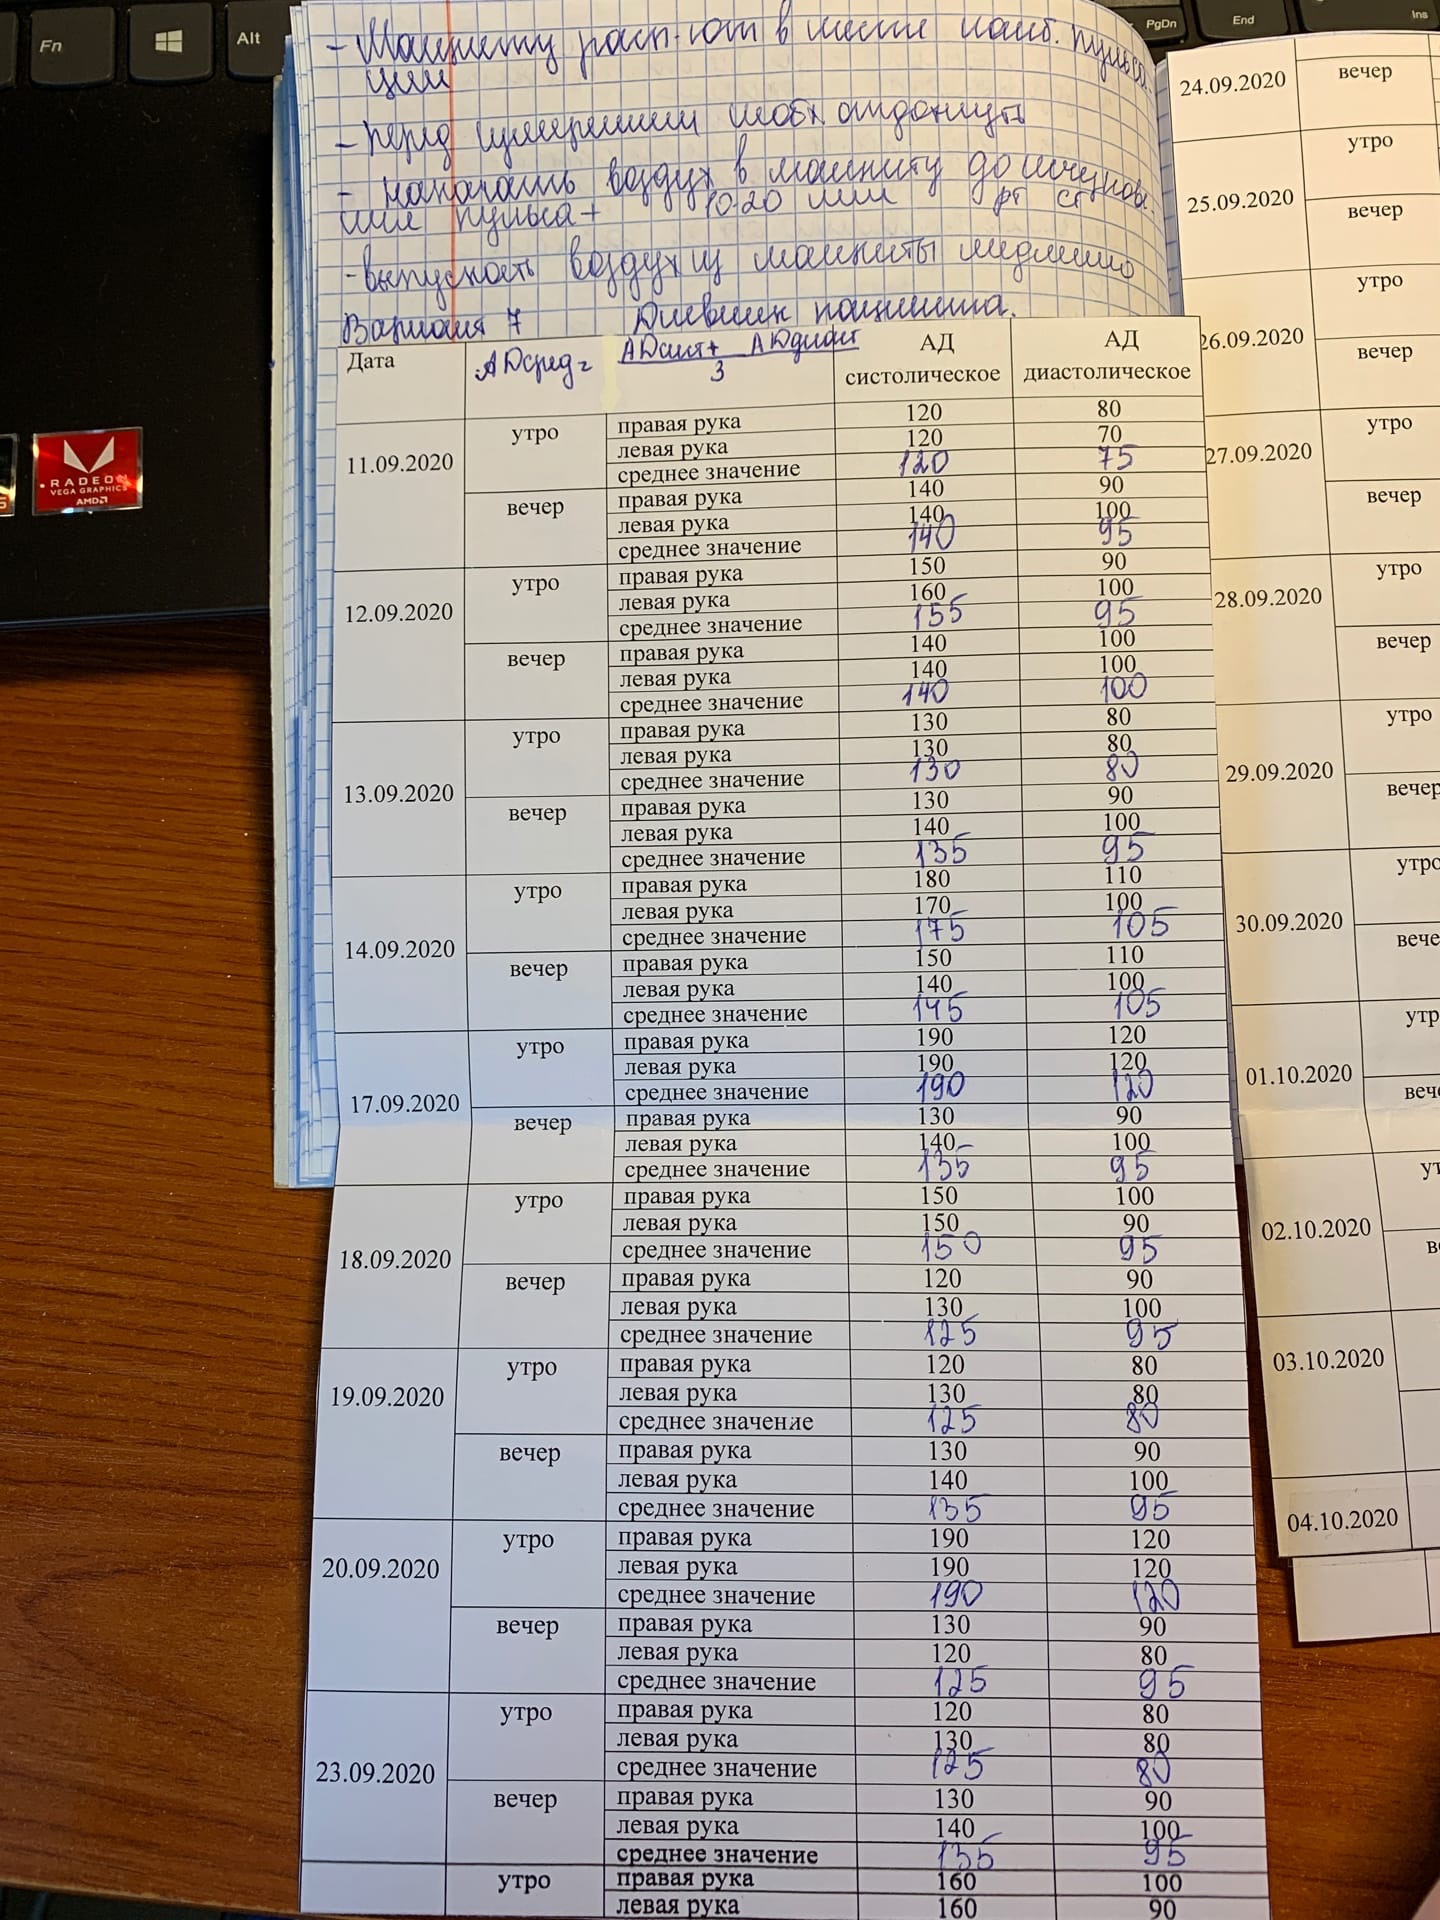 Fn
Alt
PgDn
End
Ins
- Манжету расп-ют в месте наиб. пульса
ции
- перед измерением необх отдохнуть
- накачать воздух в манжету до исчезнове
ния пульса + 10-20 мм рт ст
- выпускать воздух из манжеты медленно
Вариант 7 Дневник пациента.
Дата АДсред = АДсист + АДдиаст АД систолическое АД диастолическое
3
11.09.2020
утро
правая рука 120 80
левая рука 120 70
среднее значение 120 75
вечер
правая рука 140 90
левая рука 140 100
среднее значение 140 95
12.09.2020
утро
правая рука 150 90
левая рука 160 100
среднее значение 155 95
вечер
правая рука 140 100
левая рука 140 100
среднее значение 140 100
13.09.2020
утро
правая рука 130 80
левая рука 130 80
среднее значение 130 80
вечер
правая рука 130 90
левая рука 140 100
среднее значение 135 95
14.09.2020
утро
правая рука 180 110
левая рука 170 100
среднее значение 175 105
вечер
правая рука 150 110
левая рука 140 100
среднее значение 145 105
17.09.2020
утро
правая рука 190 120
левая рука 190 120
среднее значение 190 120
вечер
правая рука 130 90
левая рука 140 100
среднее значение 135 95
18.09.2020
утро
правая рука 150 100
левая рука 150 90
среднее значение 150 95
вечер
правая рука 120 90
левая рука 130 100
среднее значение 125 95
19.09.2020
утро
правая рука 120 80
левая рука 130 80
среднее значение 125 80
вечер
правая рука 130 90
левая рука 140 100
среднее значение 135 95
20.09.2020
утро
правая рука 190 120
левая рука 190 120
среднее значение 190 120
вечер
правая рука 130 90
левая рука 120 80
среднее значение 125 95
23.09.2020
утро
правая рука 120 80
левая рука 130 80
среднее значение 125 80
вечер
правая рука 130 90
левая рука 140 100
среднее значение 135 95
утро
правая рука 160 100
левая рука 160 90
24.09.2020
вечер
25.09.2020
утро
вечер
26.09.2020
утро
вечер
27.09.2020
утро
вечер
28.09.2020
утро
вечер
29.09.2020
утро
вечер
30.09.2020
утро
вече
01.10.2020
утр
веч
02.10.2020
ут
в
03.10.2020
04.10.2020
RADEON
VEGA GRAPHICS
AMD